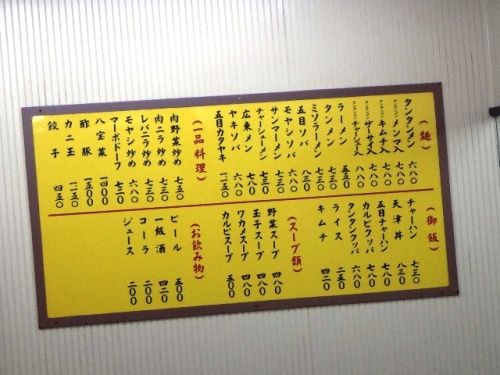 (麺)
タンタンメン 六八〇
タンタンメンネギ入
タンタンメンキムチ入 七八〇
タンタンメンザーサイ入 七八〇
タンタンメンチャーシュー入
ラーメン 五五〇
タンメン 六三〇
ミソラーメン 六三〇
五目ソバ 八三〇
モヤシソバ 六八〇
サンマーメン 七三〇
チャーシューメン
広東メン
ヤキソバ 六八〇
五目カタヤキ 一一五〇
(一品料理)
肉野菜炒め 七五〇
肉ニラ炒め 七五〇
レバニラ炒め 七五〇
モヤシ炒め 六五〇
マーボドーフ 七三〇
八宝菜 一四〇〇
酢豚 一五〇〇
カニ玉 一一五〇
餃子 四五〇
(御飯)
チャーハン 七三〇
天津丼 八三〇
五目チャーハン 七八〇
カルビクッパ 七八〇
タンタンクッパ 六八〇
ライス 二五〇
キムチ 四二〇
(スープ類)
野菜スープ 四八〇
玉子スープ 四八〇
ワカメスープ 四八〇
カルビスープ 五〇〇
(お飲み物)
ビール 五〇〇
一級酒 四二〇
コーラ 二〇〇
ジュース 二〇〇